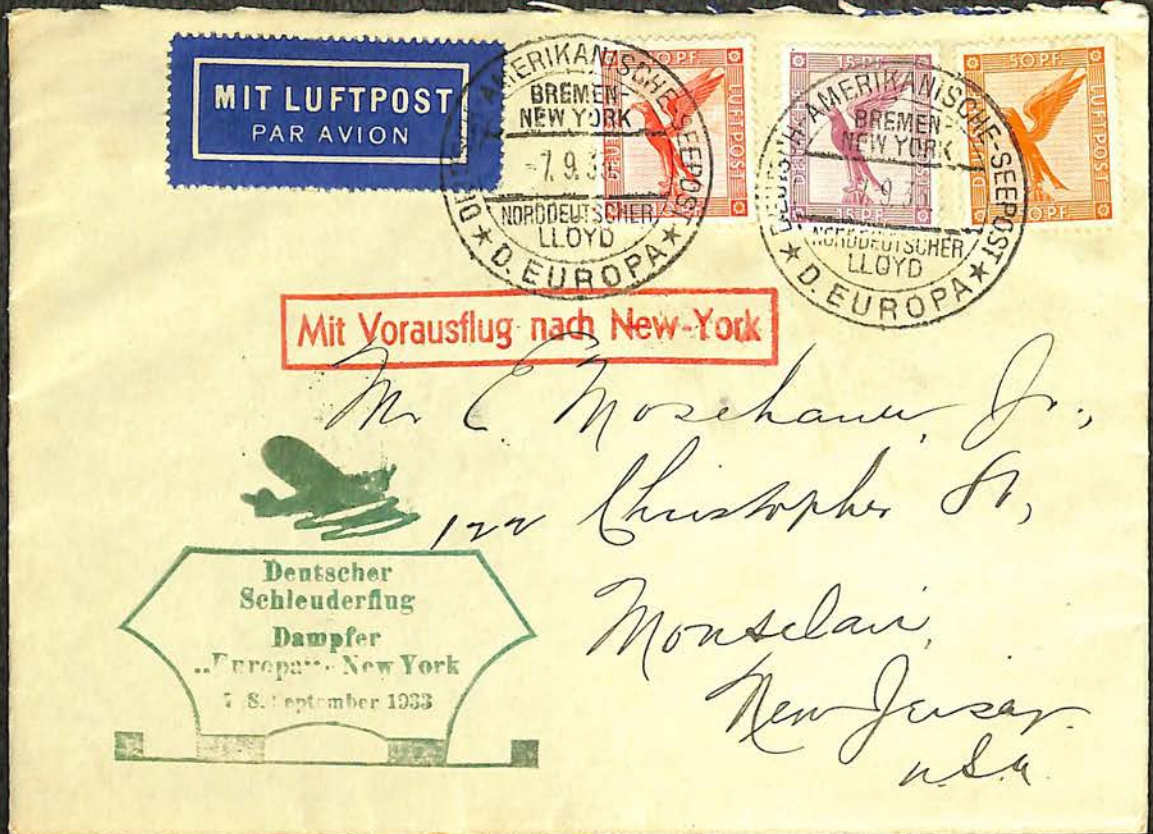 MIT LUFTPOST
PAR AVION
DEUTSCH-AMERIKANISCHE-SEEPOST
BREMEN-
NEW YORK
-7.9.33
NORDDEUTSCHER
LLOYD
★ D. EUROPA ★
20 PF.
LUFTPOST
15 PF.
15 PF.
DEUTSCH-AMERIKANISCHE-SEEPOST
BREMEN-
NEW YORK
NORDDEUTSCHER
LLOYD
★ D. EUROPA ★
50 PF.
LUFTPOST
50 PF.
Mit Vorausflug nach New-York
Mr E Moschauer, Jr.,
122 Christopher St,
Montclair,
New Jersey
U.S.A.
Deutscher
Schleuderflug
Dampfer
„Europa"- New York
7./8. September 1933